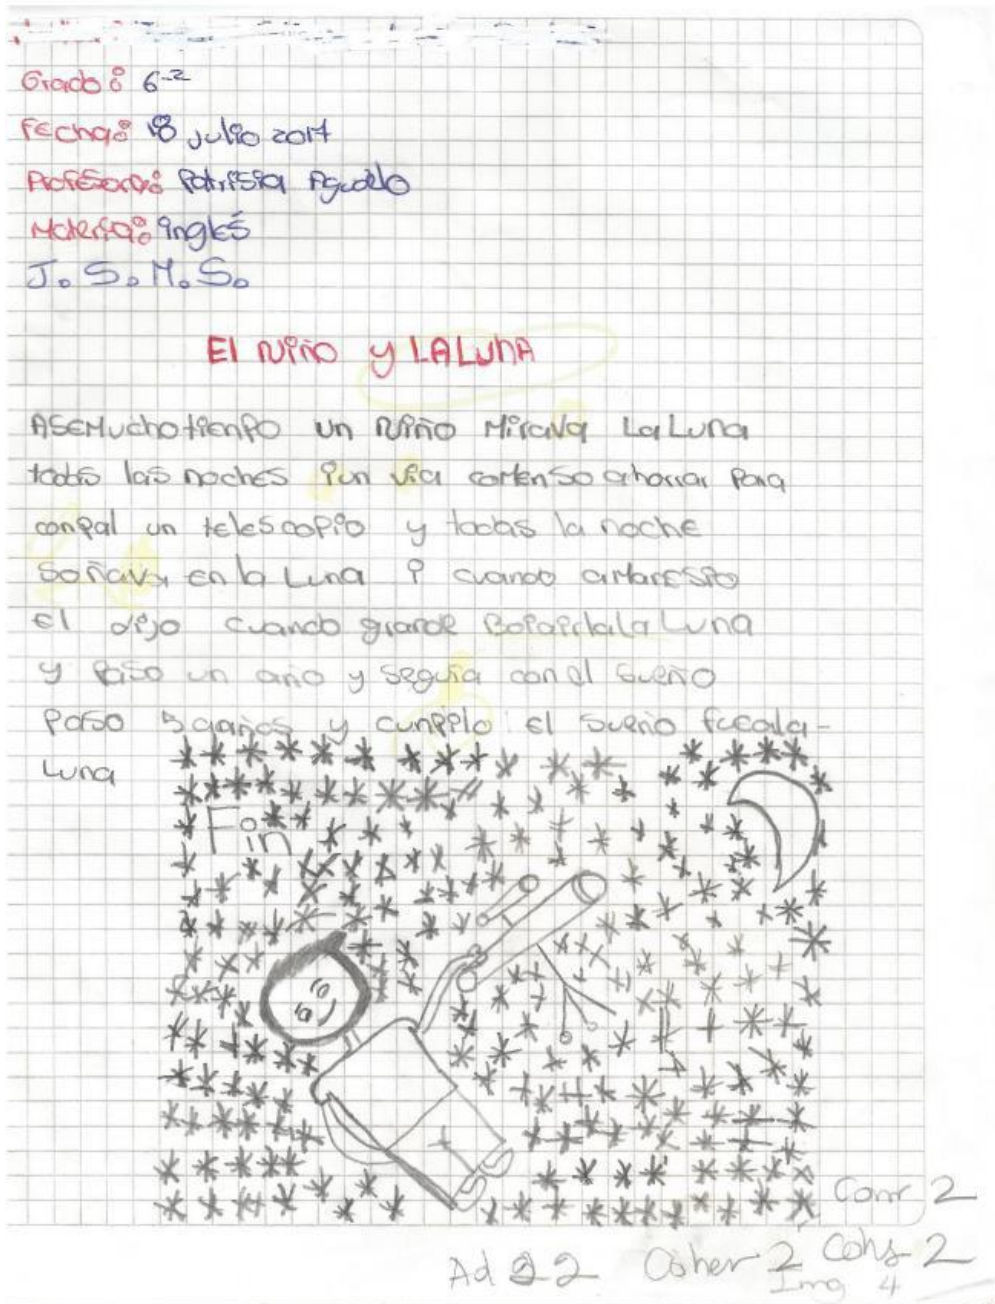 Grado: 6-2
Fecha: 18 julio 2017
Profesora: Patrisia Agudelo
Materia: inglés
J. S. M. S.
El niño y LA LUNA
ASE Mucho tienpo un niño Mirava La Luna
todas las noches i un via comenso ahorrar para
conpal un telescopio y todas la noche
Soñava en la Luna i cuando amanesio
el dijo cuando grande a la Luna
y paso un año y seguia con el sueño
paso 5 años y cunplio el sueño fue a la-
Luna
Fin
Conr 2
Ad 2 2 Coher 2 Cohs 2
Img 4